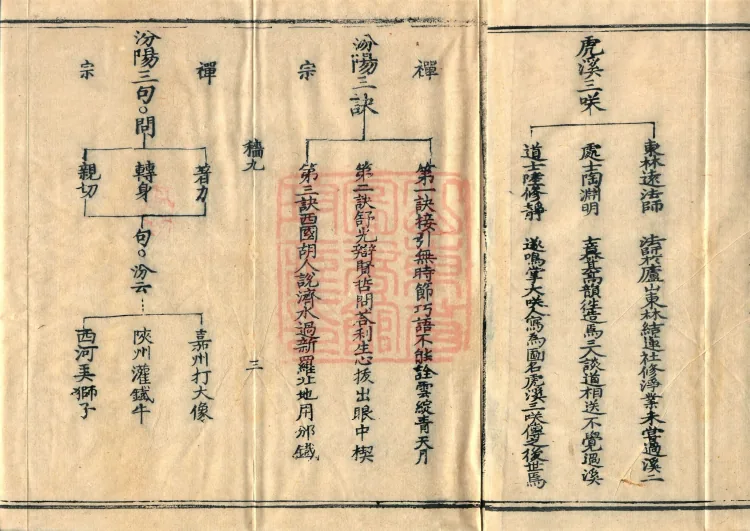 虎溪三咲
東林遠法師 法師扵廬山東林結蓮社修淨業未嘗過溪二
處士陶淵明 士高韻徃造焉三人談道相送不覺過溪
道士陸修靜 遂鳴掌大咲人寫為圖名虎溪三咲之後世焉
禪
汾陽三訣
宗
第一訣接引無時節巧語不能詮雲綻青天月
第二訣舒光辯賢哲問荅利生心拔出眼中楔
第三訣西國胡人說濟水過新羅北地用邠鐵
九
三
禪
汾陽三句○問
宗
著力
轉身
親切
句○汾云
嘉州打大像
陝州灌鐵牛
西河弄獅子